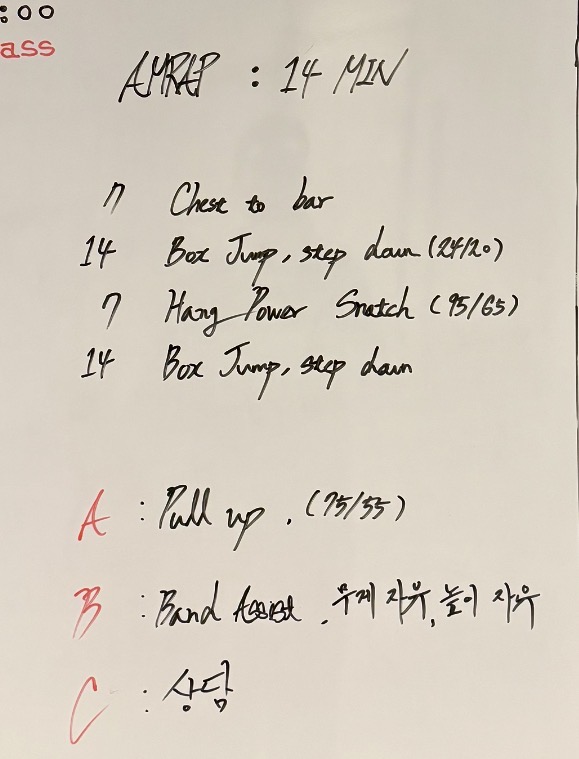 :00
ass
AMRAP : 14 MIN
7 Chest to bar
14 Box Jump, step down (24/20)
7 Hang Power Snatch (95/65)
14 Box Jump, step down
A : Pull up. (75/55)
B : Band Assist. 무게 자유, 높이 자유
C : 상담